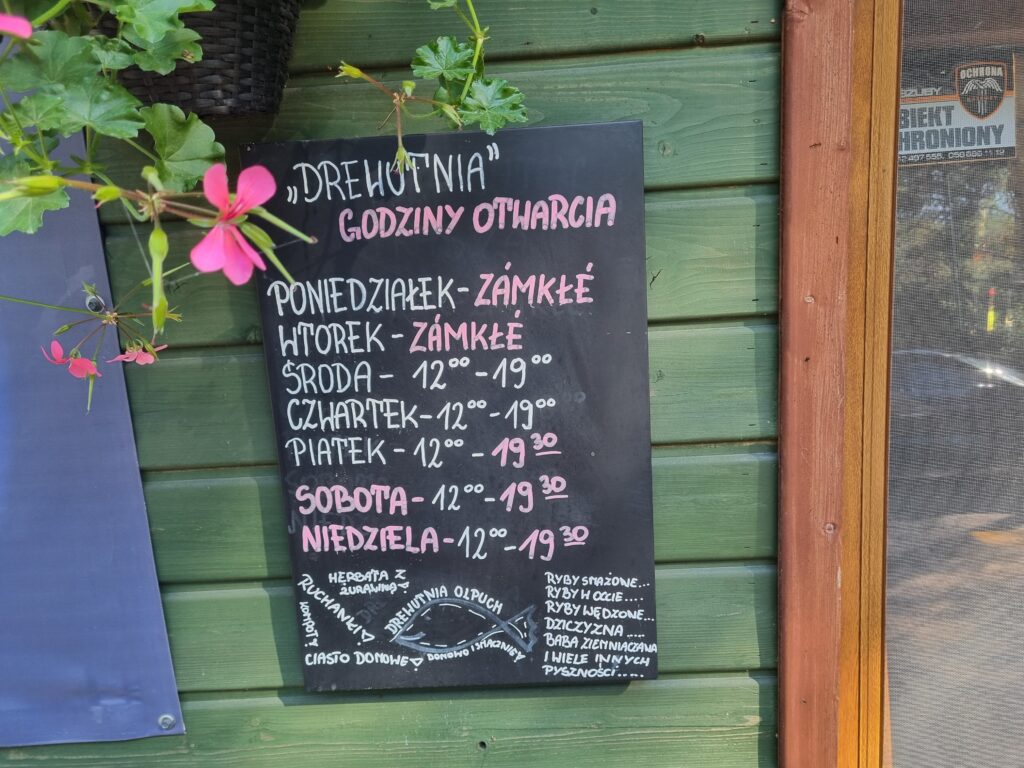 „DREWUTNIA"
GODZINY OTWARCIA
PONIEDZIAŁEK - ZÁMKŁÉ
WTOREK - ZÁMKŁÉ
ŚRODA - 12⁰⁰ - 19⁰⁰
CZWARTEK - 12⁰⁰ - 19⁰⁰
PIATEK - 12⁰⁰ - 19³⁰
SOBOTA - 12⁰⁰ - 19³⁰
NIEDZIELA - 12⁰⁰ - 19³⁰
HERBATA Z
ŻURAWINĄ
RUCHANKI
KOMPOTY
CIASTO DOMOWE
DREWUTNIA OLPUCH
DOMOWO I SMACZNIE
RYBY SMAŻONE...
RYBY W OCCIE....
RYBY WĘDZONE...
DZICZYZNA.....
BABA ZIEMNIACZANA
I WIELE INNYCH
PYSZNOŚCI.....
OCHRONA
BIEKT
HRONIONY